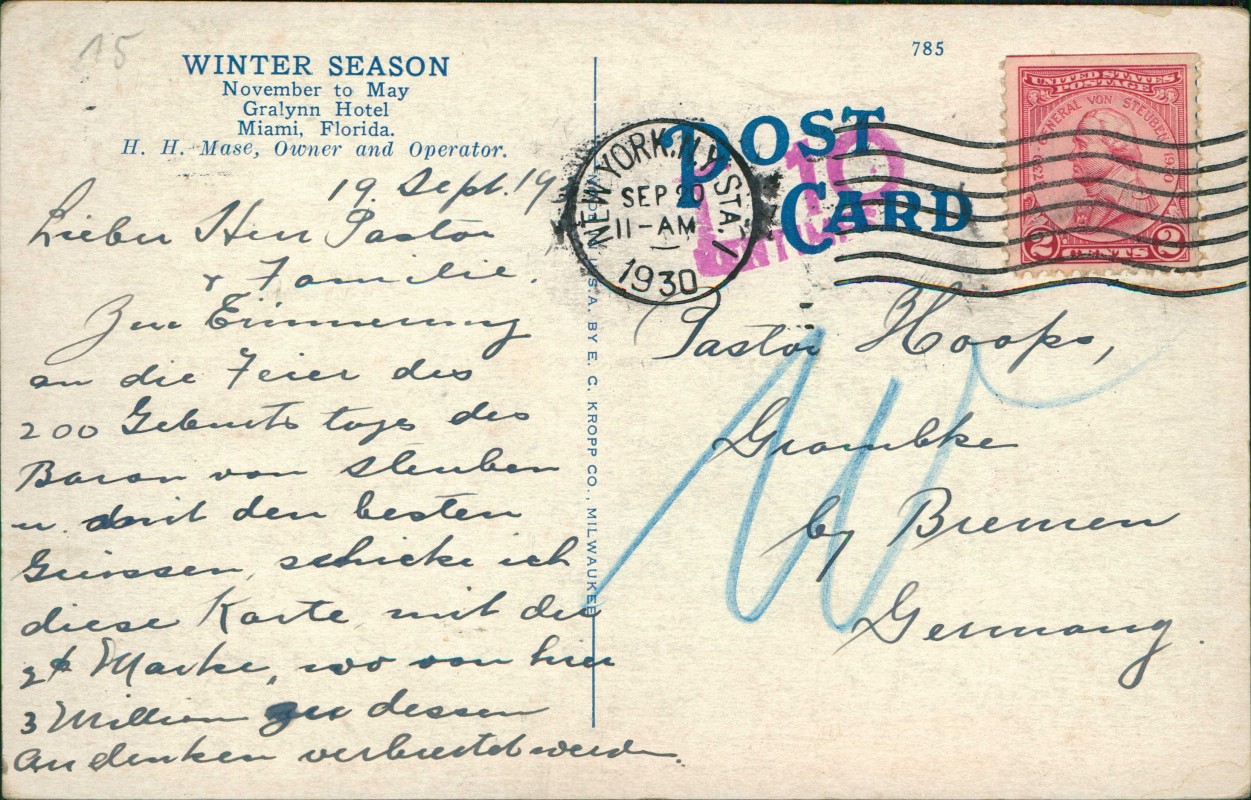 15
WINTER SEASON
November to May
Gralynn Hotel
Miami, Florida.
H. H. Mase, Owner and Operator.
19. Sept. 19
Lieber Herr Pastor
& Familie.
Zur Erinnerung
an die Feier des
200 Geburtstags des
Baron von Steuben
u. mit den besten
Grüssen, schicke ich
diese Karte mit die
2¢ Marke, wo von hier
3 Million zu dessen
Andenken verbreitet werden.
U.S.A. BY E. C. KROPP CO., MILWAUKEE
785
POST CARD
NEW YORK, N.Y. STA.
SEP 20
11-AM
1930
10
CENTIMES
UNITED STATES
POSTAGE
GENERAL VON STEUBEN
1730 1930
2 CENTS 2
Pastor Hoops,
Grambke
by Bremen
Germany.